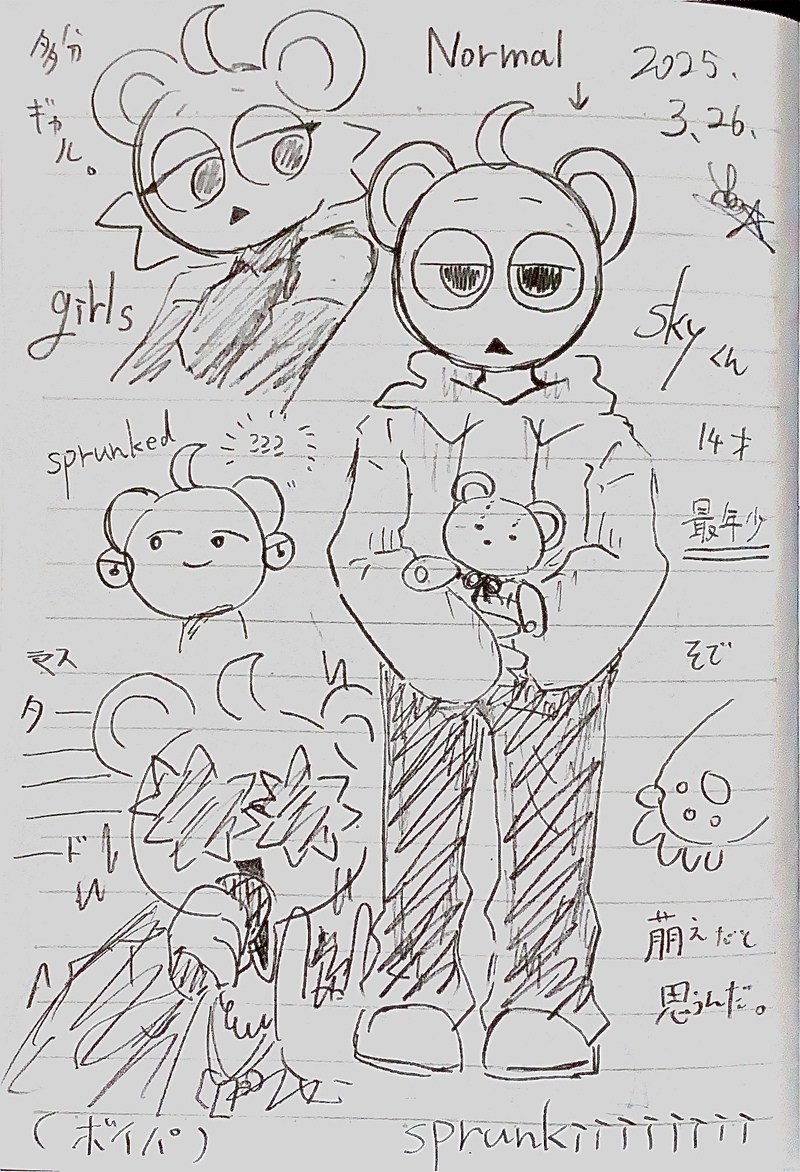 多分
ギャル。
girls
Normal
↓
2025.
3.26.
skyくん
14才
最年少
sprunked
???
マスター
ドル
そで
萌えだと
思うんだ。
(ボイパ)
sprunkiiiiiiiii